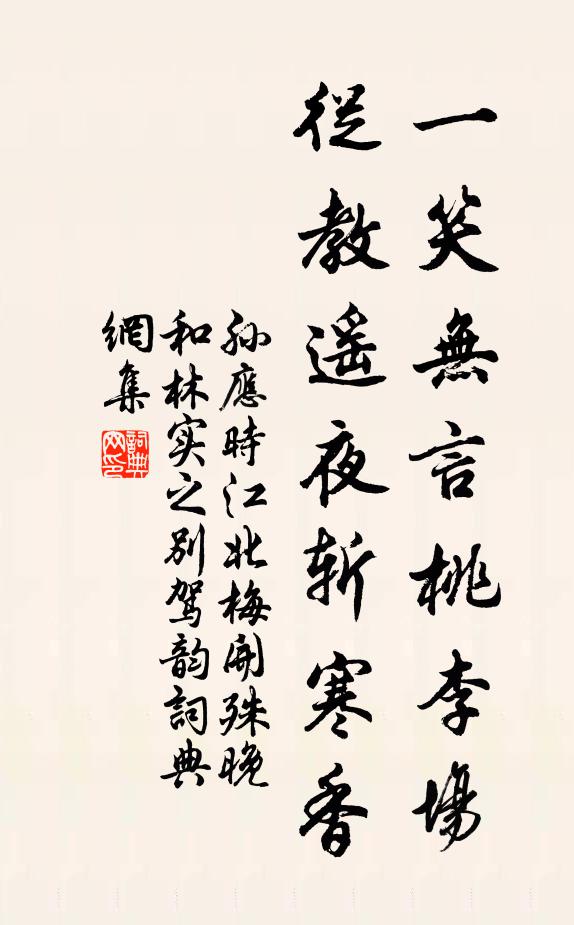 一笑無言桃李場
從教遥夜斬寒香
孙應時江北梅開殊晚
和林实之别駕韵詞典
網集
詞典
网印